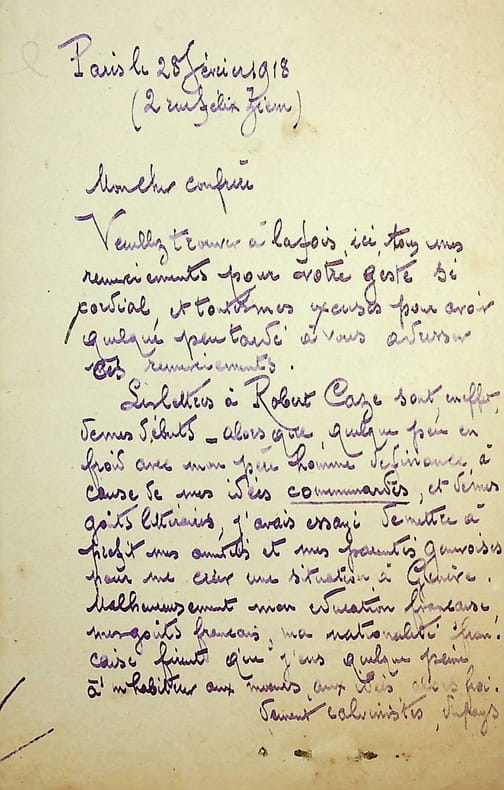 Paris le 28 février 1918
(2 rue Félix Ziem)
Mon cher confrère
Veuillez trouver à la fois, ici, tous mes
remerciements pour votre geste si
cordial, et toutes mes excuses pour avoir
quelque peu tardé à vous adresser
ces remerciements.
Les lettres à Robert Caze sont, en effet,
de mes débuts _ alors que, quelque peu en
froid avec mon père homme de finance, à
cause de mes idées communardes, et de mes
goûts littéraires, j'avais essayé de mettre à
profit mes amitiés et mes parentés genevoises
pour me créer une situation à Genève.
Malheureusement mon éducation française,
mes goûts français, ma nationalité fran-
çaise firent que j'eus quelque peine
à m'habituer aux moeurs, aux idées alors
calvinistes, du pays